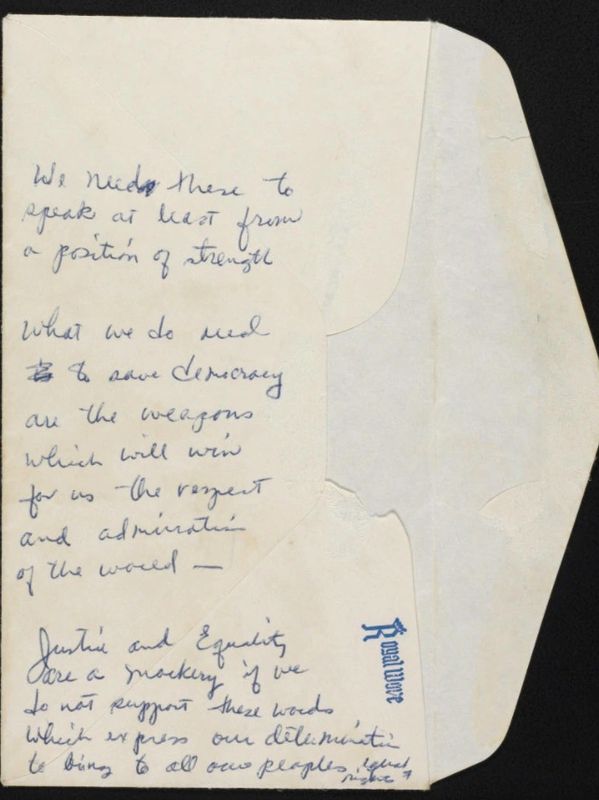 We need these to
speak at least from
a position of strength
What we do need
to save democracy
are the weapons
which will win
for us the respect
and admiration
of the world —
Justice and Equality
are a mockery if we
do not support these words
which express our determination
to bring to all our peoples equal
rights
Royal Wove